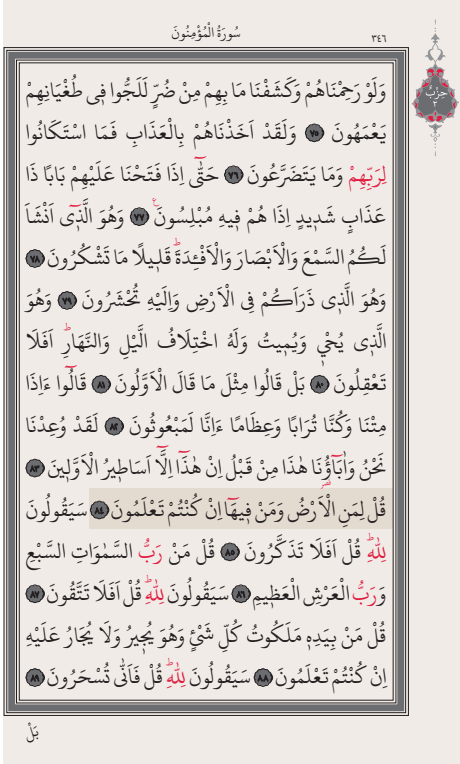 سُورَةُ الْمُؤْمِنُونَ
٣٤٦
حِزْبٌ
وَلَوْ رَحِمْنَاهُمْ وَكَشَفْنَا مَا بِهِمْ مِنْ ضُرٍّ لَلَجُّوا فِى طُغْيَانِهِمْ
يَعْمَهُونَ ٧٥ وَلَقَدْ اَخَذْنَاهُمْ بِالْعَذَابِ فَمَا اسْتَكَانُوا
لِرَبِّهِمْ وَمَا يَتَضَرَّعُونَ ٧٦ حَتّٰٓى اِذَا فَتَحْنَا عَلَيْهِمْ بَابًا ذَا
عَذَابٍ شَدٖيدٍ اِذَا هُمْ فٖيهِ مُبْلِسُونَ ٧٧ وَهُوَ الَّذٖٓى اَنْشَاَ
لَكُمُ السَّمْعَ وَالْاَبْصَارَ وَالْاَفْـِٔدَةَؕ قَلٖيلًا مَا تَشْكُرُونَ ٧٨
وَهُوَ الَّذٖى ذَرَاَكُمْ فِى الْاَرْضِ وَاِلَيْهِ تُحْشَرُونَ ٧٩ وَهُوَ
الَّذٖى يُحْيٖ وَيُمٖيتُ وَلَهُ اخْتِلَافُ الَّيْلِ وَالنَّهَارِؕ اَفَلَا
تَعْقِلُونَ ٨٠ بَلْ قَالُوا مِثْلَ مَا قَالَ الْاَوَّلُونَ ٨١ قَالُٓوا ءَاِذَا
مِتْنَا وَكُنَّا تُرَابًا وَعِظَامًا ءَاِنَّا لَمَبْعُوثُونَ ٨٢ لَقَدْ وُعِدْنَا
نَحْنُ وَاٰبَٓاؤُ۬نَا هٰذَا مِنْ قَبْلُ اِنْ هٰذَٓا اِلَّٓا اَسَاطٖيرُ الْاَوَّلٖينَ ٨٣
قُلْ لِمَنِ الْاَرْضُ وَمَنْ فٖيهَٓا اِنْ كُنْتُمْ تَعْلَمُونَ ٨٤ سَيَقُولُونَ
لِلّٰهِؕ قُلْ اَفَلَا تَذَكَّرُونَ ٨٥ قُلْ مَنْ رَبُّ السَّمٰوَاتِ السَّبْعِ
وَرَبُّ الْعَرْشِ الْعَظٖيمِ ٨٦ سَيَقُولُونَ لِلّٰهِؕ قُلْ اَفَلَا تَتَّقُونَ ٨٧
قُلْ مَنْ بِيَدِهٖ مَلَكُوتُ كُلِّ شَىْءٍ وَهُوَ يُجٖيرُ وَلَا يُجَارُ عَلَيْهِ
اِنْ كُنْتُمْ تَعْلَمُونَ ٨٨ سَيَقُولُونَ لِلّٰهِؕ قُلْ فَاَنّٰى تُسْحَرُونَ ٨٩
بَلْ